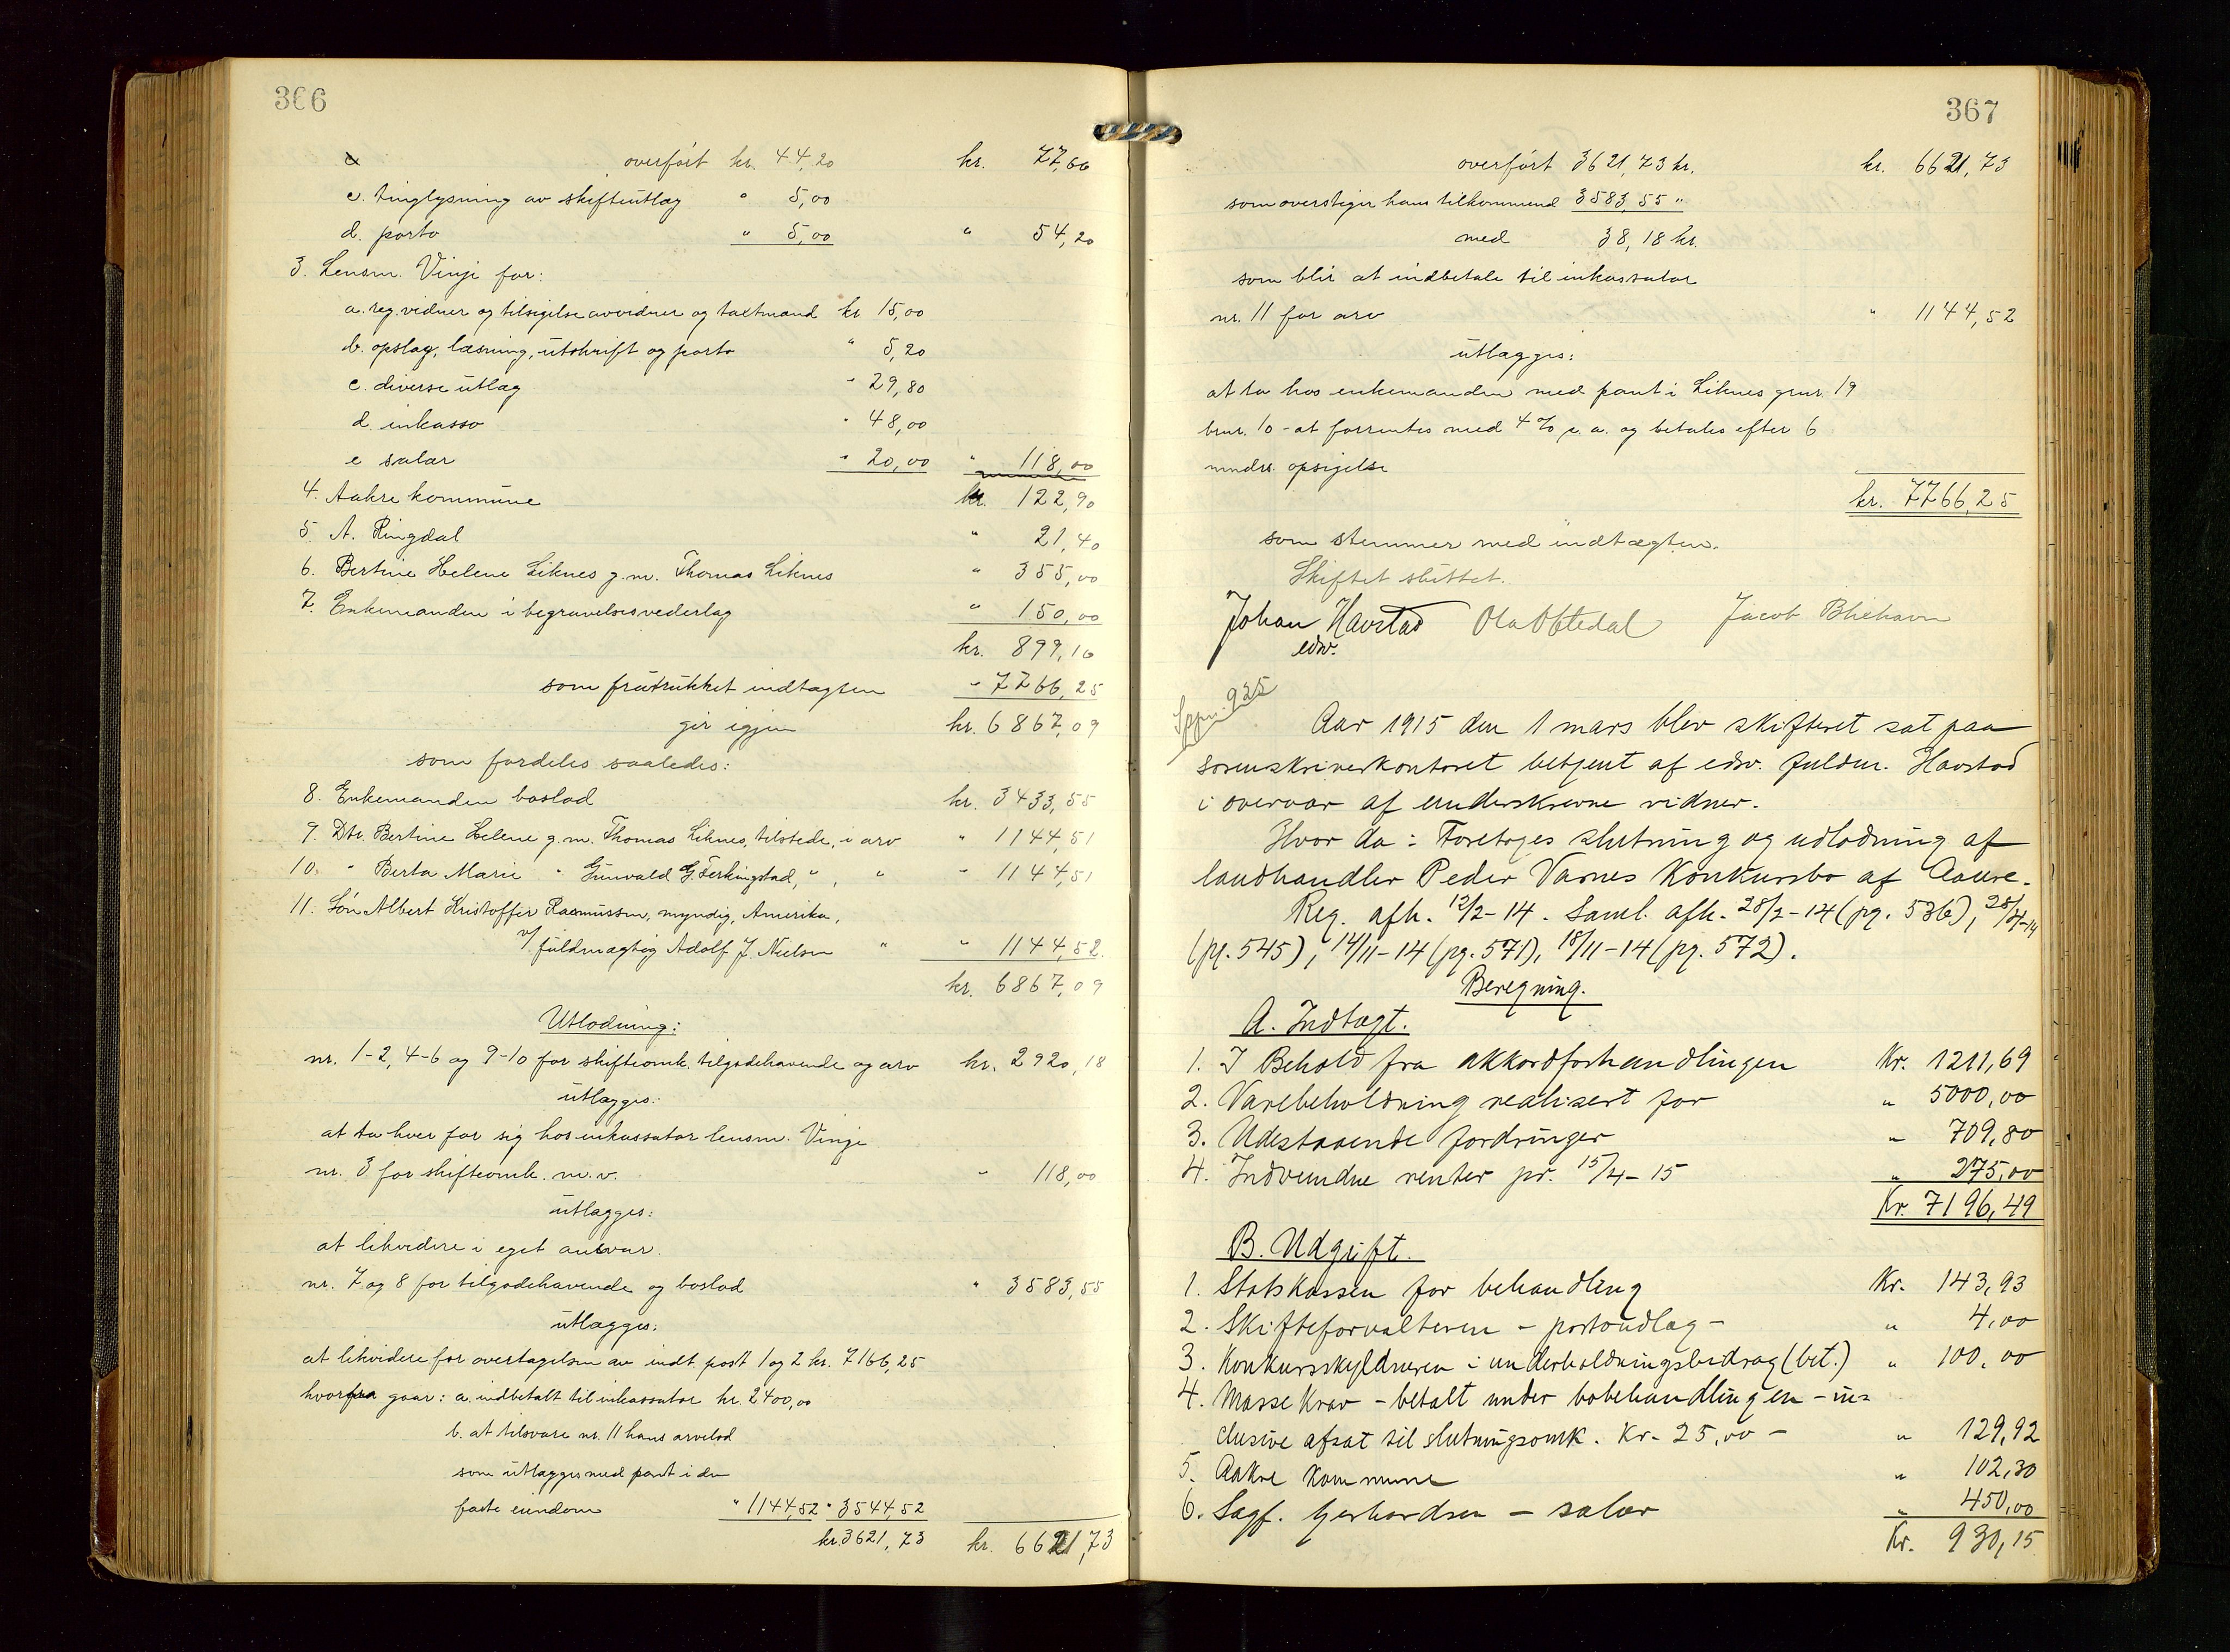 366
overført kr. 44,20 kr. 77,66
c. tinglysning av skifteutlæg " 5,00
d. porto " 5,00 " 54,20
3. Lensm. Vinje for:
a. reg. vidner og tilsigelse av vidner og taxtmænd kr 15,00
b. opslag, læsning, utskrift og porto " 5,20
c. diverse utlæg " 29,80
d. inkasso " 48,00
e salær " 20,00 " 118,00
4. Aakre kommune kr. 122,90
5. A. Ringdal " 21,40
6. Bertine Helene Liknes g.m. Thomas Liknes " 355,00
7. Enkemanden i begravelsesvederlag " 150,00
kr. 899,16
som fratrukket indtægten " 7766,25
gir igjen kr. 6867,09
som fordeles saaledes:
8. Enkemanden boslod kr. 3433,55
9. Dtr. Bertine Helene g.m. Thomas Liknes, tilstede, i arv " 1144,51
10. " Berta Marie " Gunvald G. Ferkingstad, " , " " 1144,51
11. Søn Albert Kristoffer Rasmussen, myndig, Amerika,
v/ fuldmægtig Adolf J. Nielsen " " 1144,52
kr. 6867,09
Utlodning:
nr. 1-2, 4-6 og 9-10 for skifteomk. tilgodehavende og arv kr. 2920,18
utlægges:
at ta hver for sig hos inkassator lensm. Vinje
nr. 3 for skifteomk. m.v. " 118,00
utlægges:
at likvidere i eget ansvar.
nr. 7 og 8 for tilgodehavende og boslod " 3583,55
utlægges:
at likvidere for overtagelsen av indt. post 1 og 2 kr. 7166,25
hvorfra gaar: a. indbetalt til inkassator kr. 2400,00
b. at tilsvare nr. 11 hans arvelod
som utlægges med pant i den
faste eiendom " 1144,52 " 3544,52
kr. 3621,73 kr. 6621,73
367
overført 3621,73 kr. kr. 6621,73
som overstiger hans tilkommend 3583,55 "
med 38,18 kr.
som blir at indbetale til inkassator
nr. 11 for arv " 1144,52
utlægges:
at ta hos enkemanden med pant i Liknes gnr. 19
brnr. 10 - at forrentes med 4 % p.a. og betales efter 6
mndrs. opsigelse
kr. 7766,25
som stemmer med indtægten.
Skiftet sluttet.
Johan Havstad Ola Oftedal Jacob Blichavn
edsv.
935
Aar 1915 den 1 mars blev skifteret sat paa
sorenskriverkontoret betjent af edsv. fuldm. Havstad
i overvær af underskrevne vidner.
Hvor da: Foretoges slutning og udlodning af
landhandler Peder Varnes Konkursbo af Aakre.
Reg. afh. 12/2-14. Saml. afh. 28/2-14 (pg. 536), 28/4-14
(pg. 545), 14/11-14 (pg. 571), 18/11-14 (pg. 572).
Beregning.
A. Indtægt.
1. I Behold fra akkordforhandlingen Kr. 1211,69
2. Varebeholdning realisert for " 5000,00
3. Udestaaende fordringer " 709,80
4. Indvundne renter pr. 15/4-15 " 275,00
Kr. 7196,49
B. Udgift.
1. Statskassen for behandling Kr. 143,93
2. Skifteforvalteren - portoudlæg - " 4,00
3. Konkursskyldneren i underholdningsbidrag (bet.) " 100,00
4. Masse Krav - betalt under bobehandlingen - in=
clusive afsat til slutningsomk. Kr. 25,00 - " 129,92
5. Aakre Kommune " 102,30
6. Sagf. Gerhardsen - salær " 450,00
Kr. 930,15